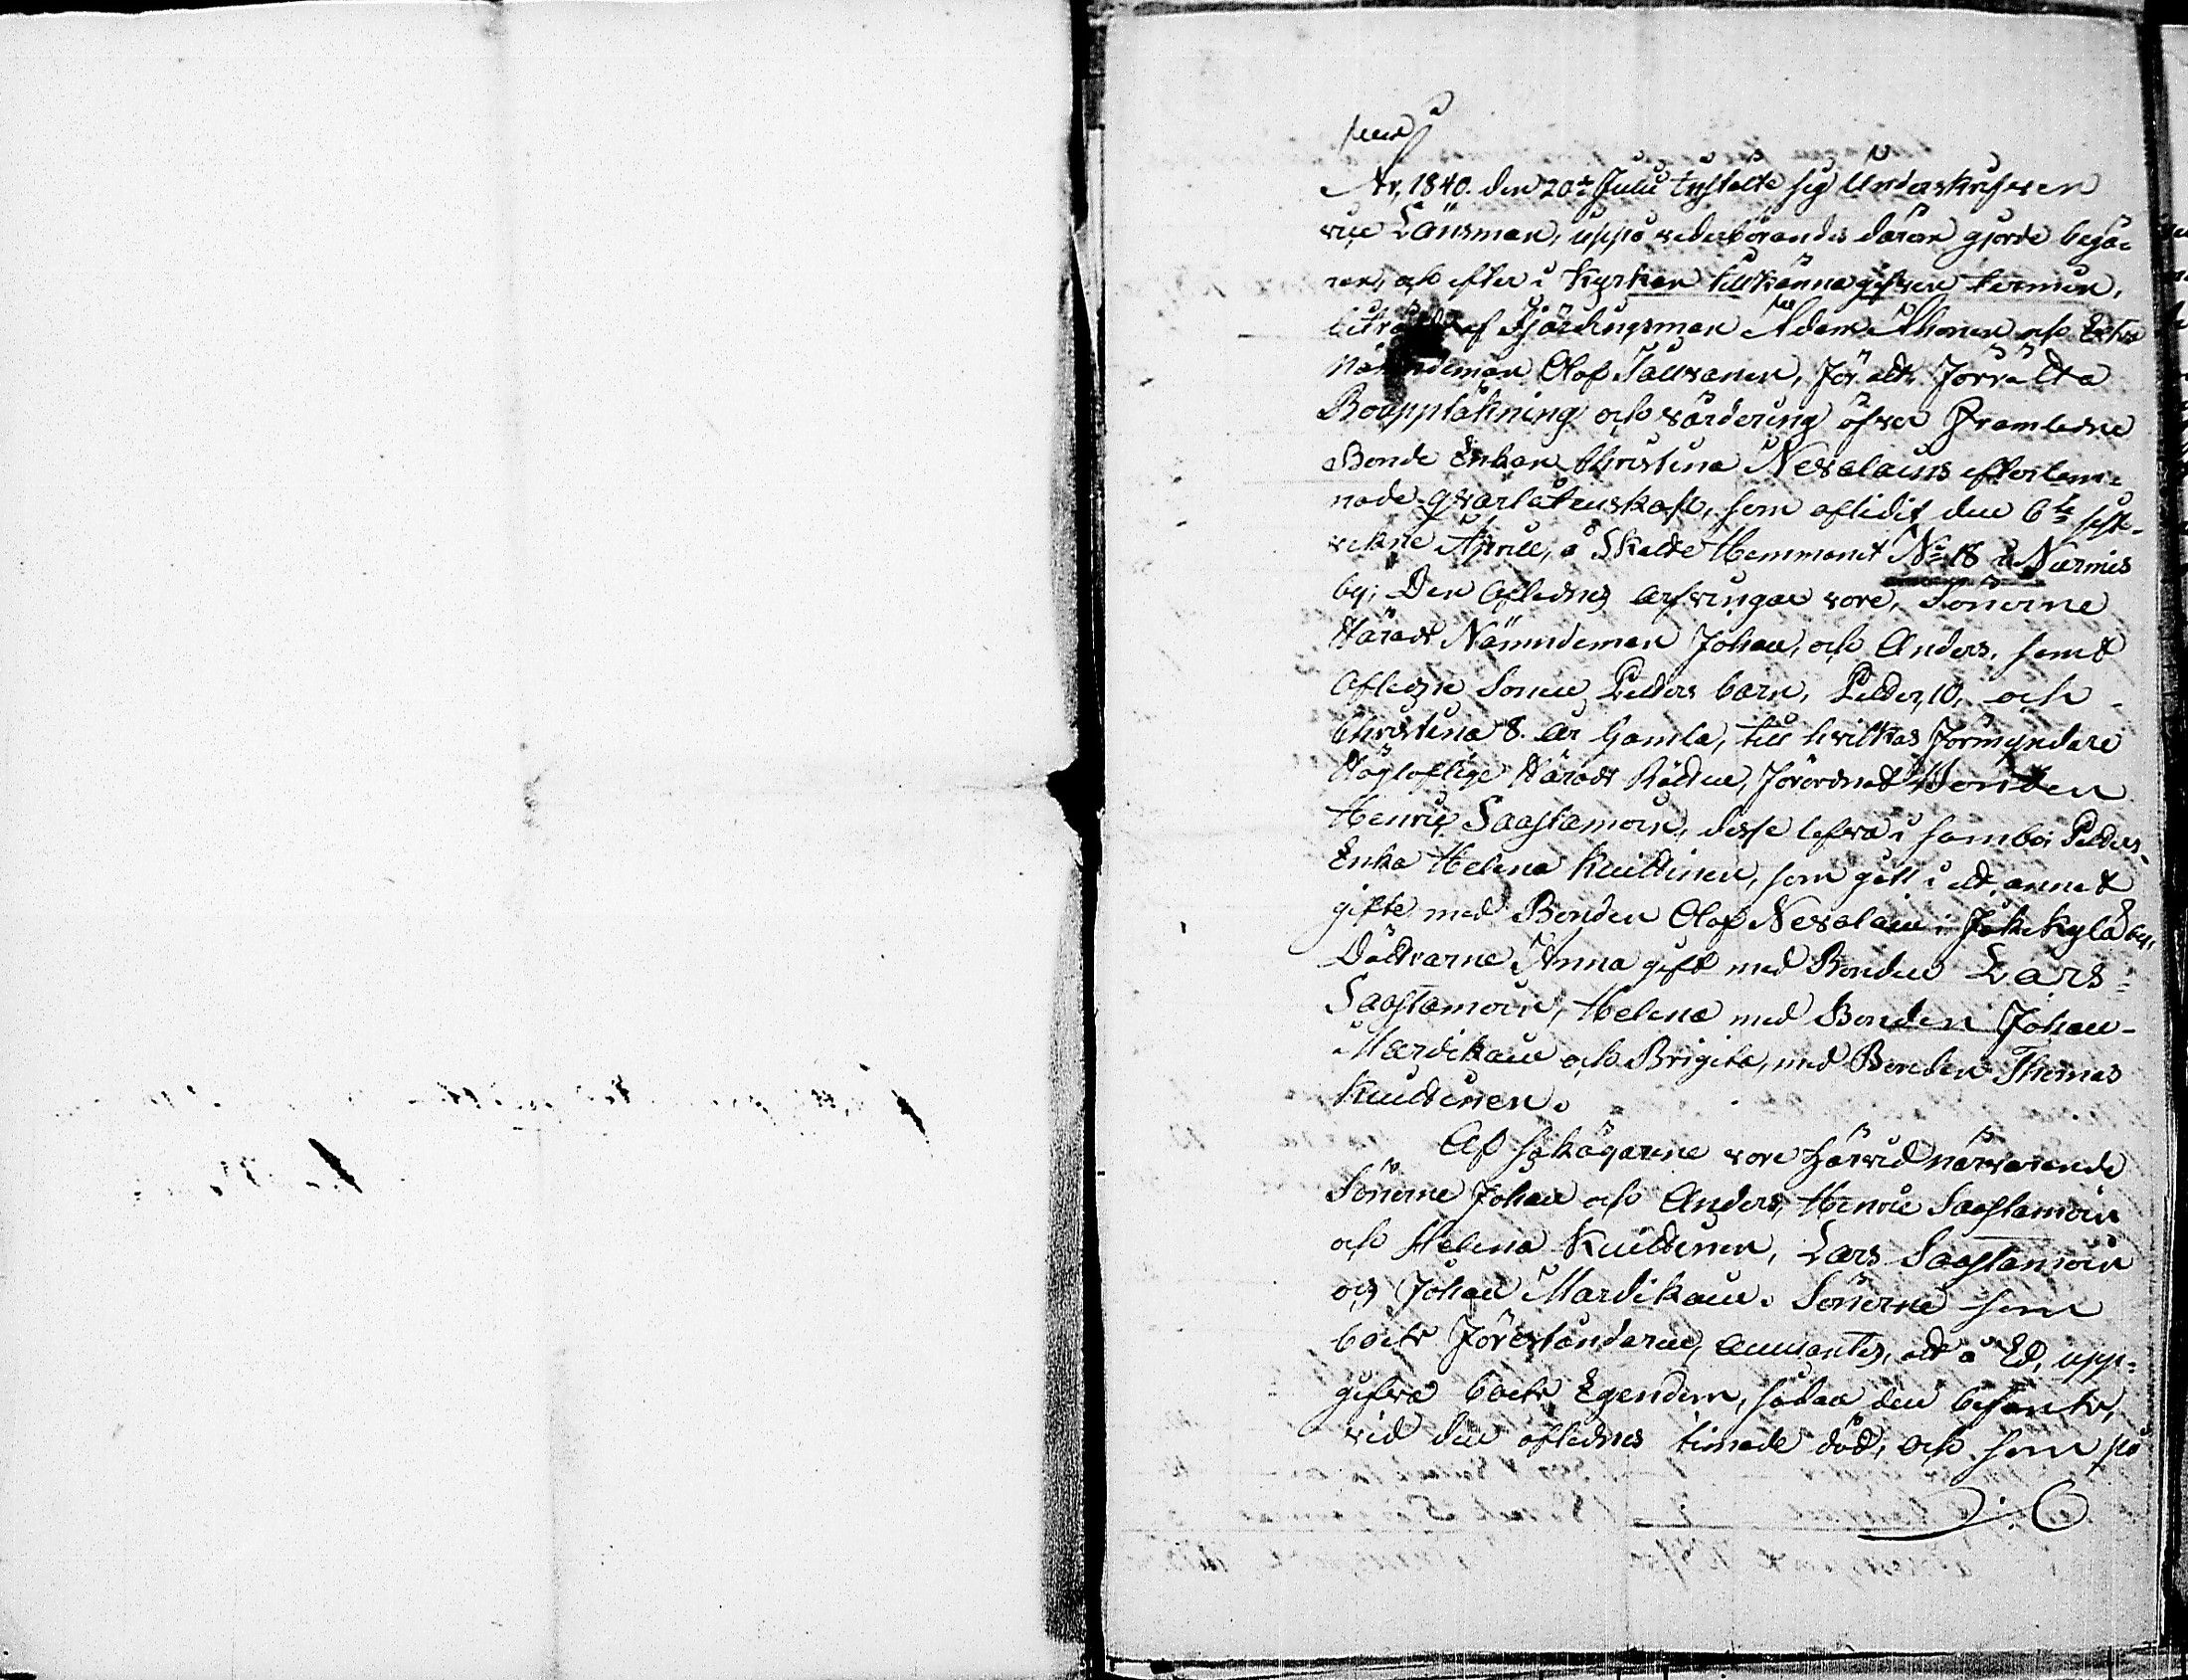 År, 1840. den 20de Julii instälte sig Underskrifven
vice Länsman, uppå vederbörandes därom gjorde begä-
ran, och efter i Kyrkan tillkännagifven termin,
biträdd af Fjärdingsman Adam Ahonen och Extra
Nämndeman Olof Tallvanen, för att förrätta
Bouppteckning och värdering öfver Framledne
Bonde Enkan Christina Nevalains efterlem-
nade qvarlåtenskap, som aflidit den 6te sist-
vekne Aprill, å Skatte Hemmanet No 18 i Nurmis
by; Den Aflednes arfvingar voro, Sönerne
Härads Nämndeman Johan, och Anders, samt
Afledne Sonen Petters barn, Petter, 10, och
Christina 8. år gamla, till hvilkas Förmyndare
Högloflige Härads Rätten, förordnat Bonden
Henric Saastamoin, desse lefva i sambo Petters
Enka Helena Kuittinen, som gått i ett annat
gifte med Bonden Olof Nevalain i Jokikylä by,
Döttrarne Anna gift med Bonden Lars
Saastamoin, Helena med Bonden Johan
Mardikain och Brigita, med Bonden Thomas
Kuittinen.
Af sakägarne voro härvid närvarande
Sönerne Johan och Anders, Henric Saastamoin
och Helena Kuittinen, Lars Saastamoin
och Johan Mardikain. Sönerne som
boets Föreståndarne, anmantes, att å Ed, upp-
gifva boets Egendom, sådan den befants,
vid den aflednes timade död, och som på